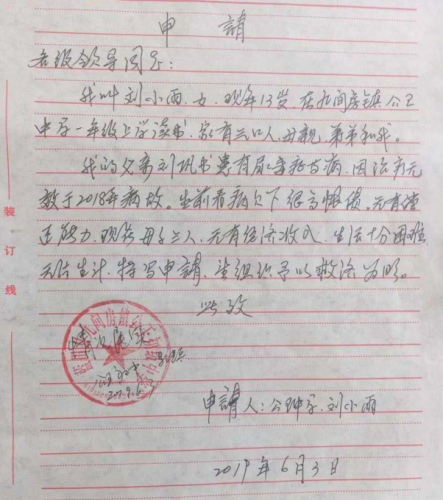 申請
各级领导同志:
我叫刘小雨、女、现年13岁、在九间房镇公王
中学一年级上学读书、家有三口人,母親、弟弟和我。
我的父亲刘 书患有尿毒症 病,因治疗无
效于2018年病故。生前看病欠下很多债,无有偿
还能力,现 母子三人,无有经济收入,生活十分困难
无 生计,特写申請,望组织予以救济为盼。
此致
申請人: 刘小雨
2019年6月3日
装订线